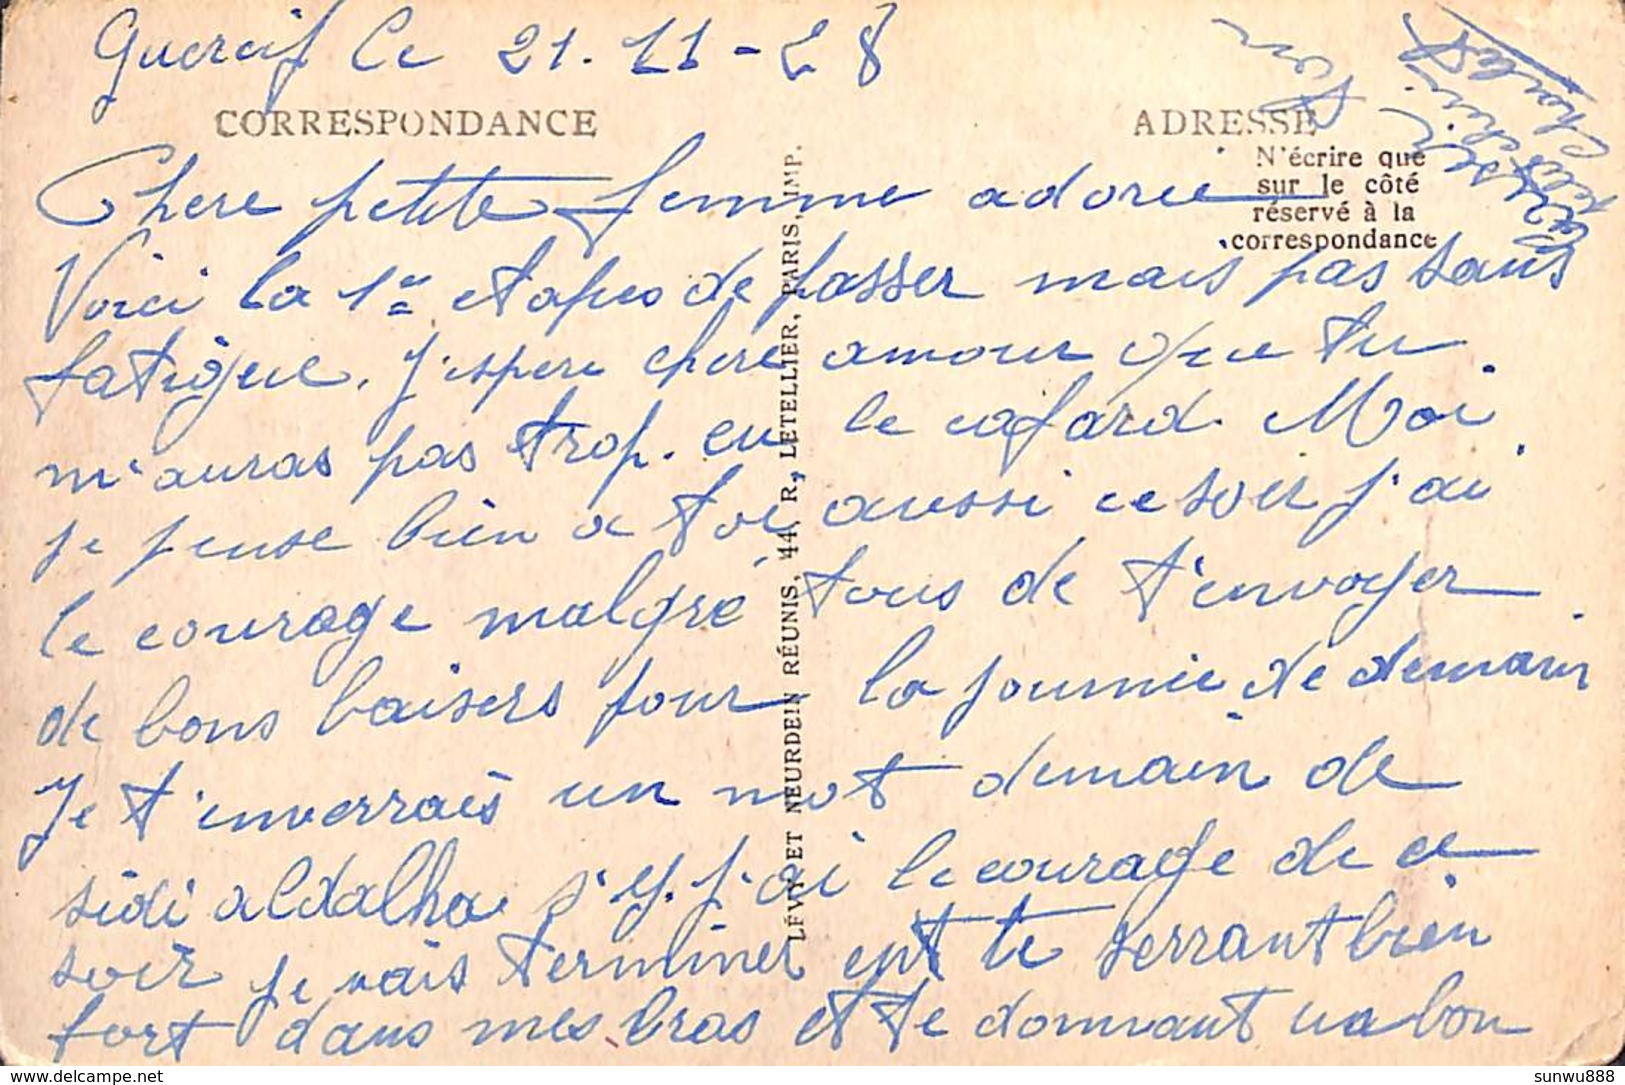 Guercif le 21-11-28
CORRESPONDANCE
ADRESSE
N'écrire que
sur le côté
réservé à la
correspondance
Chere petite femme adorée
Voici la 1re etapes de passer mais pas sans
fatigue. J'espere chere amour que tu
m'auras pas trop eu le cafard. Moi
je pense bien a toi aussi ce soir j'ai
le courage malgré tous de t'envoyer
de bons baisers pour la journée de demain
Je t'inverrais un mot demain de
sidi aldalha s'y. j'ai le courage de ce
soir je vais terminer ent te serrant bien
fort dans mes bras et te donnant un bon
baiser
Ton
cheri
Charles
LÉVY ET NEURDEIN RÉUNIS, 44, R. LETELLIER, PARIS, IMP.
sunwu888